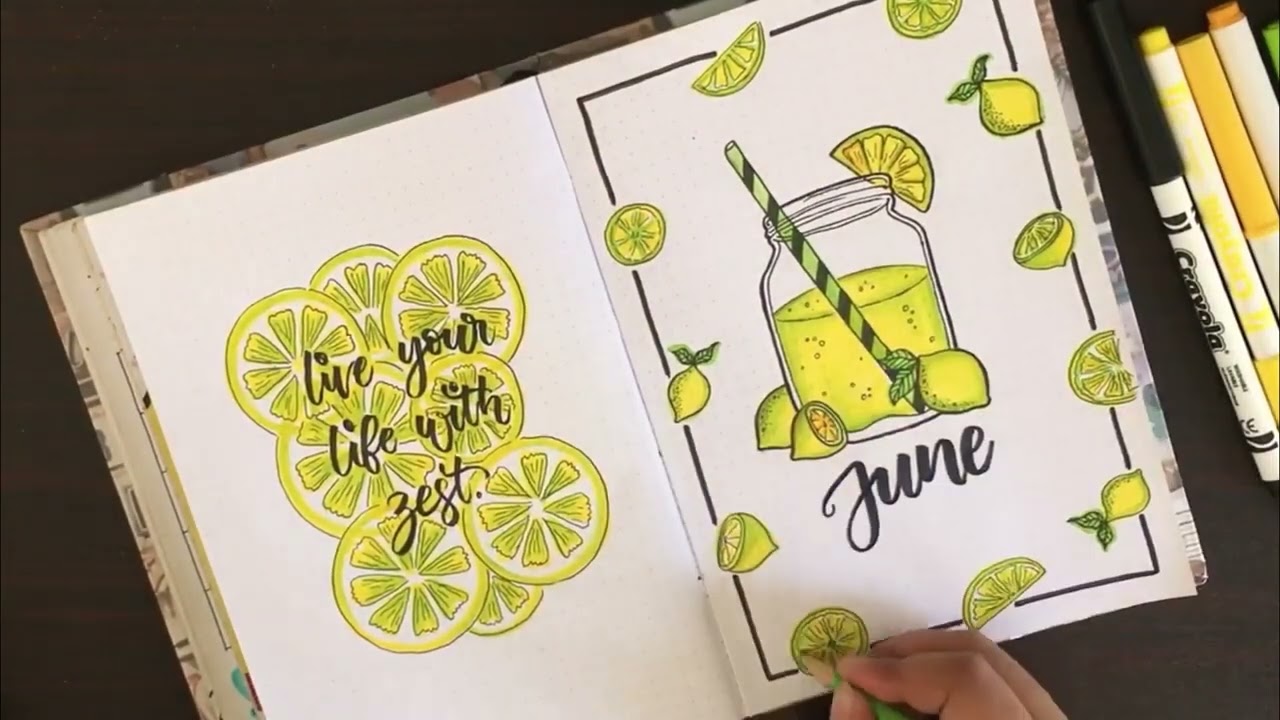 live your
life with
zest.
June
Crayola